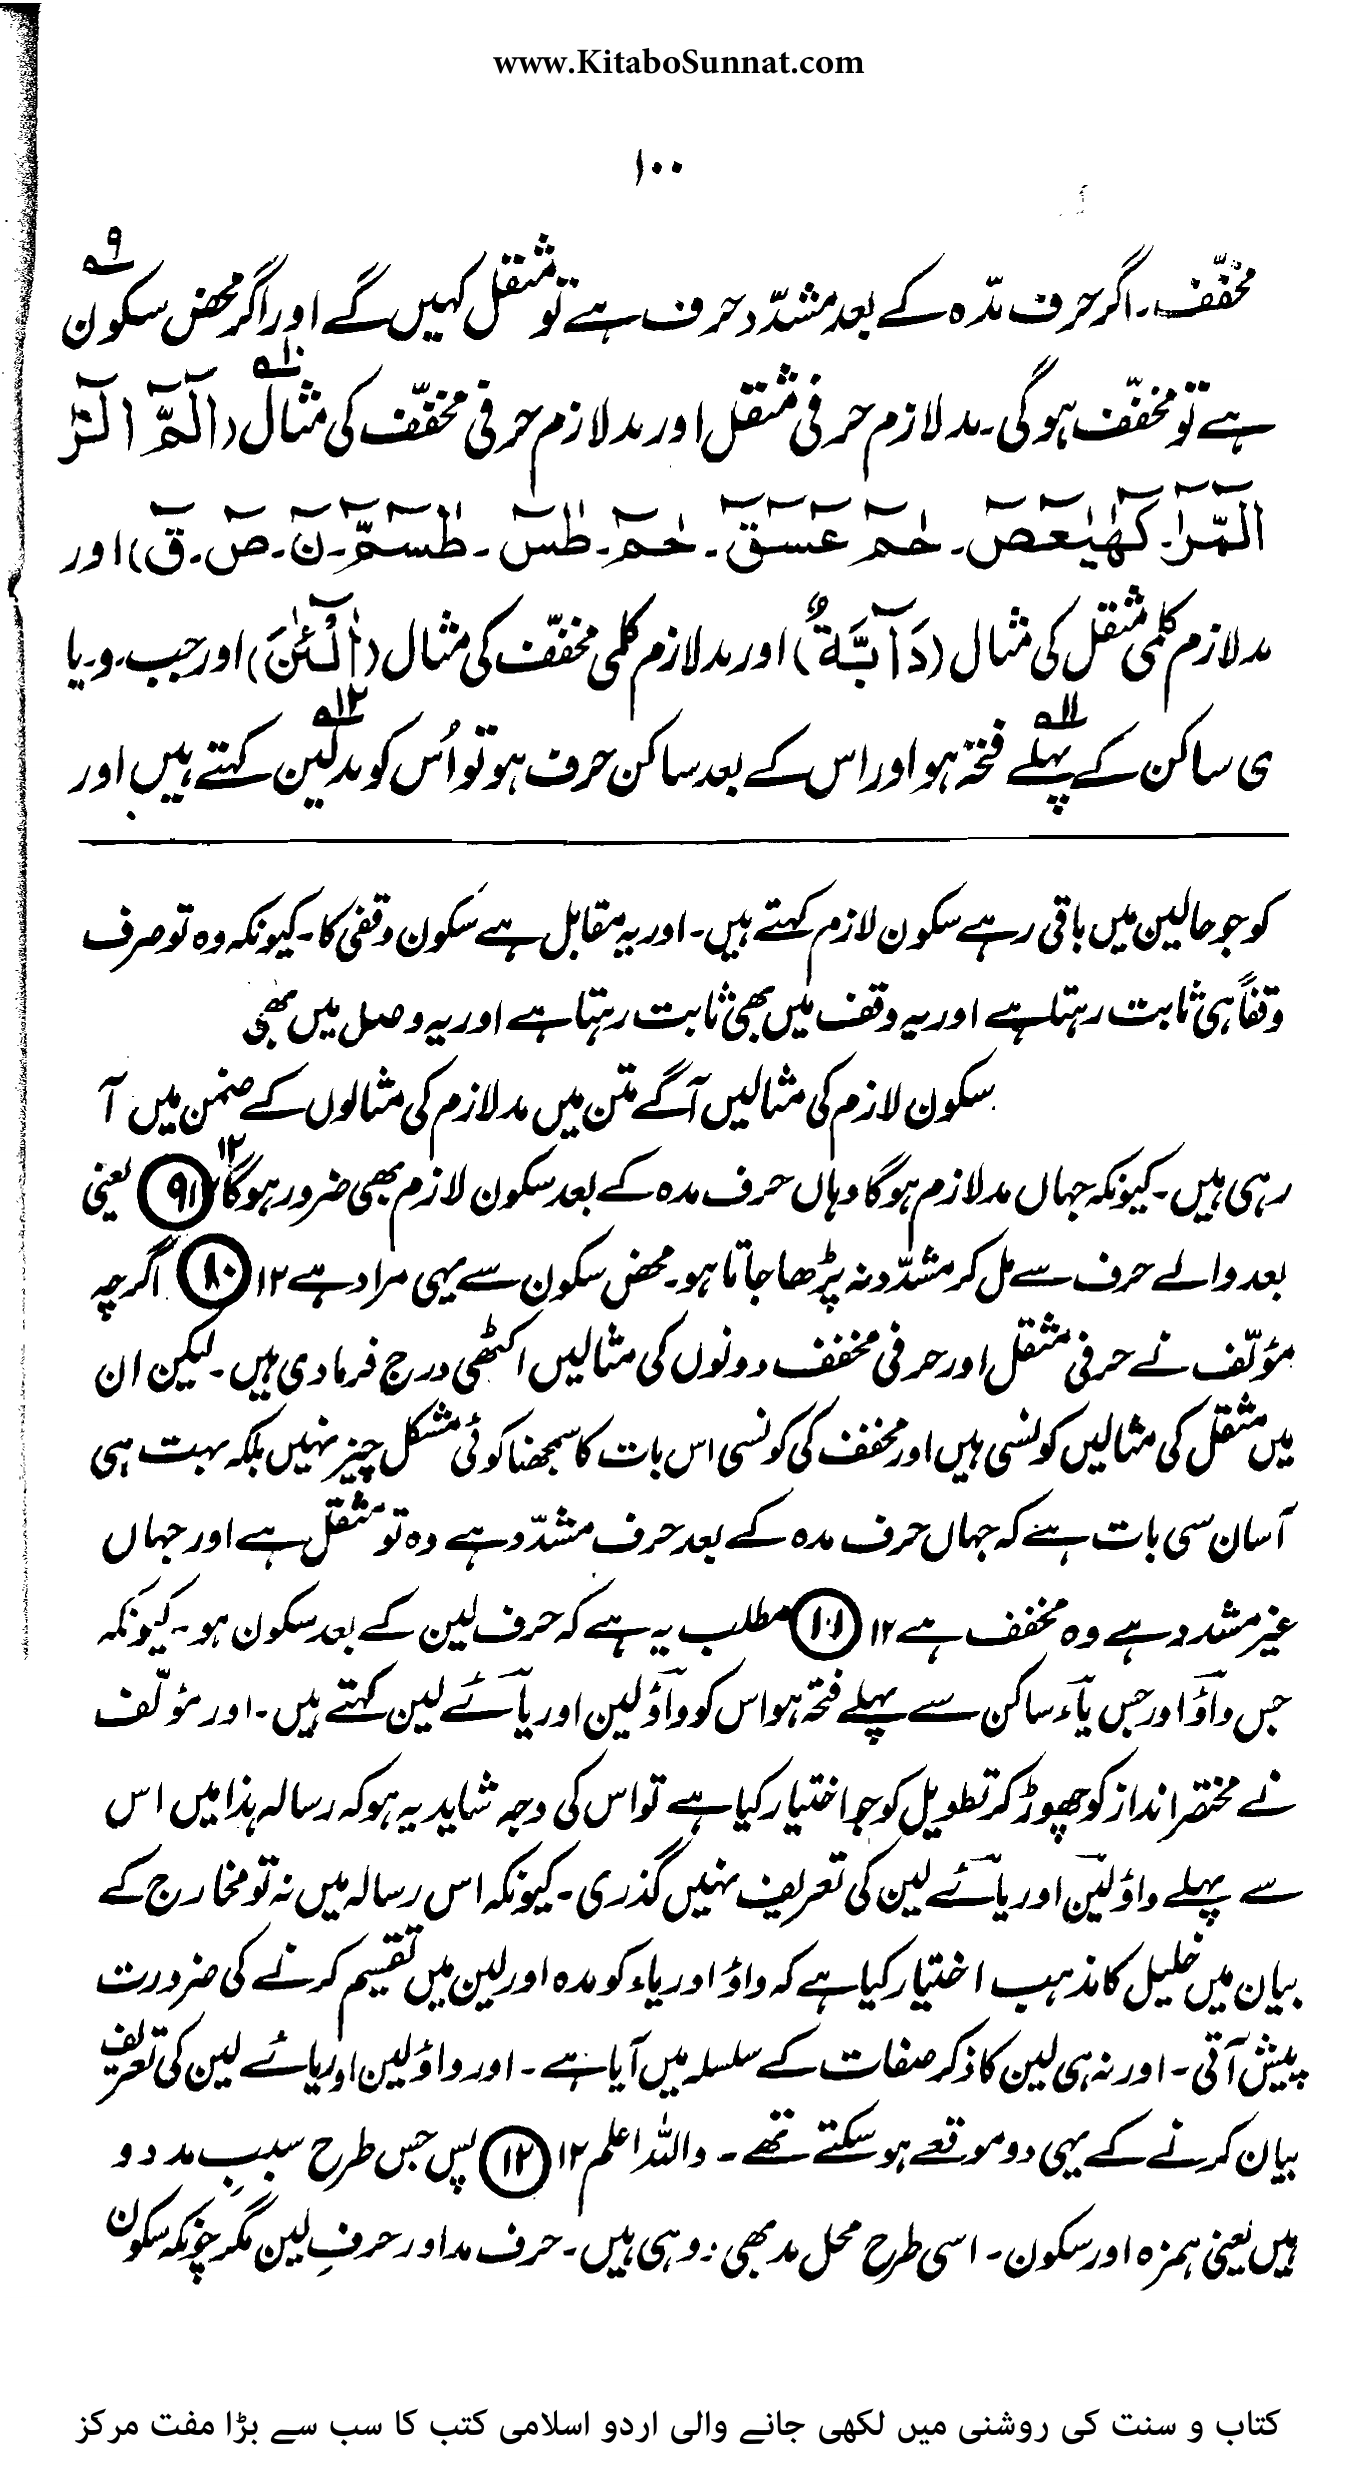 www.KitaboSunnat.com
۱۰۰
مخفّف۔ اگر حرف مدّہ کے بعد مشدّد حرف ہے تو مثقل کہیں گے اور اگر محض سکون ۹ے
ہے تو مخفّف ہوگی۔ مد لازم حرفی مثقل اور مد لازم حرفی مخفّف کی مثال ۱۰ے (الٓمّٓ الٓرٰ
الٓمّٓرٰ۔ كٓهٰيٰعٓصٓ۔ حٰمٓ عٓسٓقٓ۔ حٰمٓ۔ طٰسٓ۔ طٰسٓمّٓ۔ نٓ۔ صٓ۔ قٓ) اور
مد لازم کلمی مثقل کی مثال (دَآبَّةٌ) اور مد لازم کلمی مخفّف کی مثال (آٰلْـٰٔنَ) اور جب۔ و۔ یا
ی ساکن کے پہلے ۱۱ے فتحہ ہو اور اس کے بعد ساکن حرف ہو تو اُس کو مد لین ۱۲ے کہتے ہیں اور
کو جو حالین میں باقی رہے سکون لازم کہتے ہیں۔ اور یہ مقابل ہے سکون وقفی کا۔ کیونکہ وہ تو صرف
وقفاً ہی ثابت رہتا ہے اور یہ وقف میں بھی ثابت رہتا ہے اور یہ وصل میں بھی
سکون لازم کی مثالیں آگے متن میں مد لازم کی مثالوں کے ضمن میں آ
رہی ہیں۔ کیونکہ جہاں مد لازم ہوگا وہاں حرف مدہ کے بعد سکون لازم بھی ضرور ہوگا ۱۲ (۹) یعنی
بعد والے حرف سے مل کر مشدّد نہ پڑھا جاتا ہو۔ محض سکون سے یہی مراد ہے ۱۲ (۱۰) اگرچہ
مؤلّف نے حرفی مثقل اور حرفی مخفف دونوں کی مثالیں اکٹھی درج فرما دی ہیں۔ لیکن ان
میں مثقل کی مثالیں کونسی ہیں اور مخفف کی کونسی اس بات کا سمجھنا کوئی مشکل چیز نہیں بلکہ بہت ہی
آسان سی بات ہے کہ جہاں حرف مدہ کے بعد حرف مشدّد ہے وہ تو مثقل ہے اور جہاں
غیر مشدد ہے وہ مخفف ہے ۱۲ (۱۱) مطلب یہ ہے کہ حرف لین کے بعد سکون ہو۔ کیونکہ
جس واؤ اور جس یاء ساکن سے پہلے فتحہ ہو اس کو واؤ لین اور یائے لین کہتے ہیں۔ اور مؤلّف
نے مختصر انداز کو چھوڑ کر تطویل کو جو اختیار کیا ہے تو اس کی وجہ شاید یہ ہو کہ رسالہ ہذا میں اس
سے پہلے واؤ لین اور یائے لین کی تعریف نہیں گذری۔ کیونکہ اس رسالہ میں نہ تو مخارج کے
بیان میں خلیل کا مذہب اختیار کیا ہے کہ واؤ اور یاء کو مدہ اور لین میں تقسیم کرنے کی ضرورت
پیش آتی۔ اور نہ ہی لین کا ذکر صفات کے سلسلہ میں آیا ہے۔ اور واؤ لین اور یائے لین کی تعریف
بیان کرنے کے یہی دو موقعے ہو سکتے تھے۔ واللہ اعلم ۱۲ (۱۲) پس جس طرح سببِ مد دو
ہیں یعنی ہمزہ اور سکون۔ اسی طرح محل مد بھی دو ہی ہیں۔ حرف مد اور حرفِ لین مگر چونکہ سکون
کتاب و سنت کی روشنی میں لکھی جانے والی اردو اسلامی کتب کا سب سے بڑا مفت مرکز